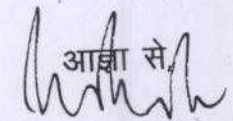 आज्ञा से,